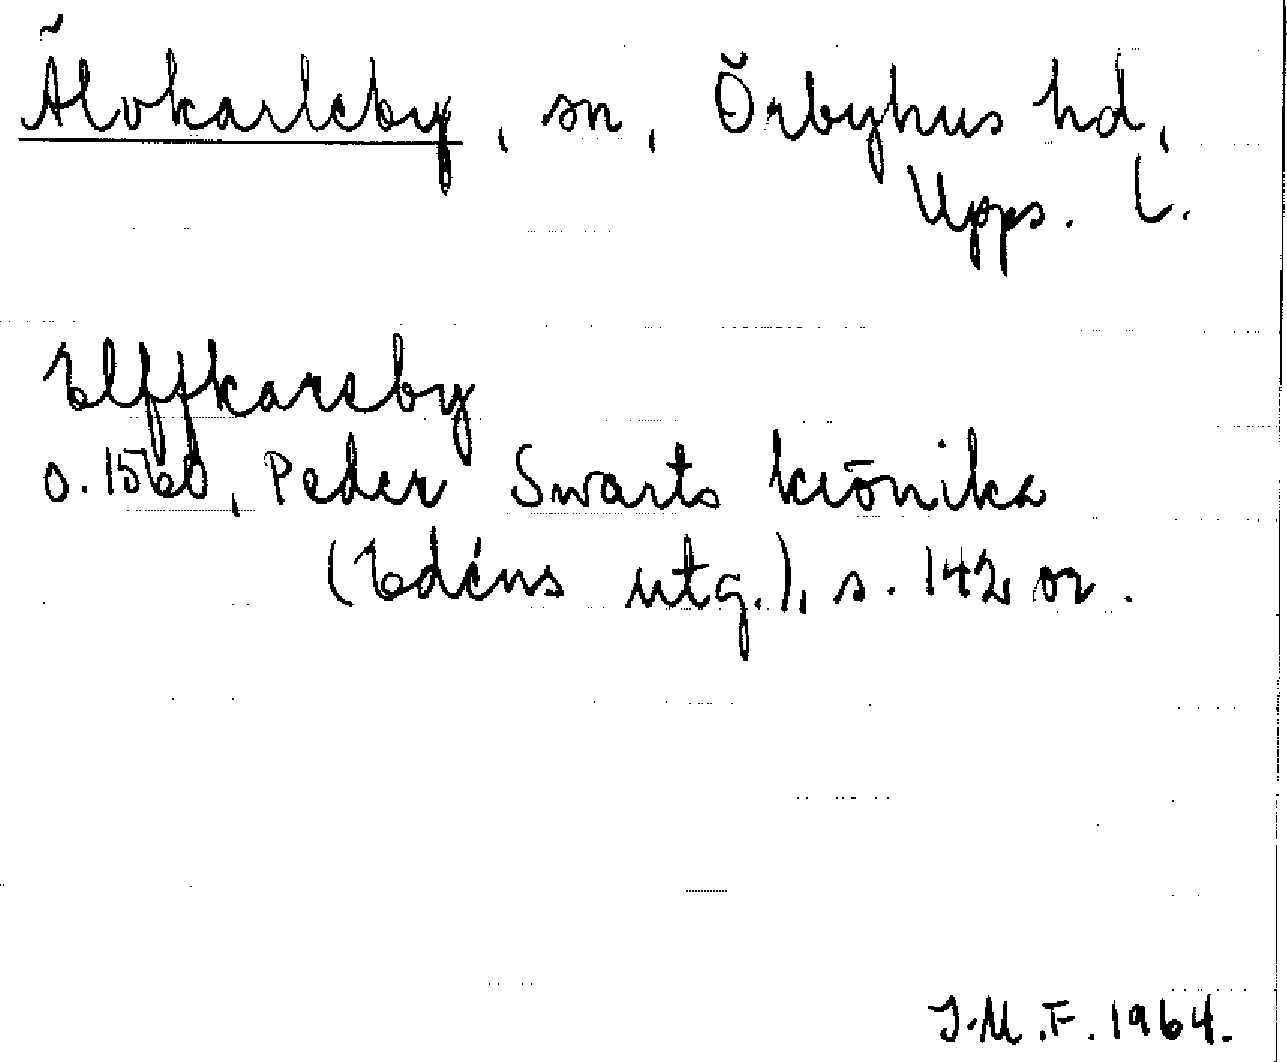 Älvkarleby, sn, Örbyhus hd,
Upps. l.
Elffkarseby
o. 1560, Peder Swarts krönika
(Edéns utg.), s. 142 or.
J.M.F. 1964.